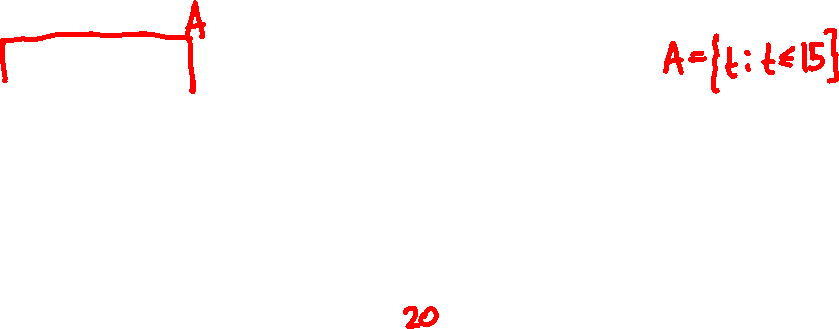 A
A = {t : t ≤ 15}
20